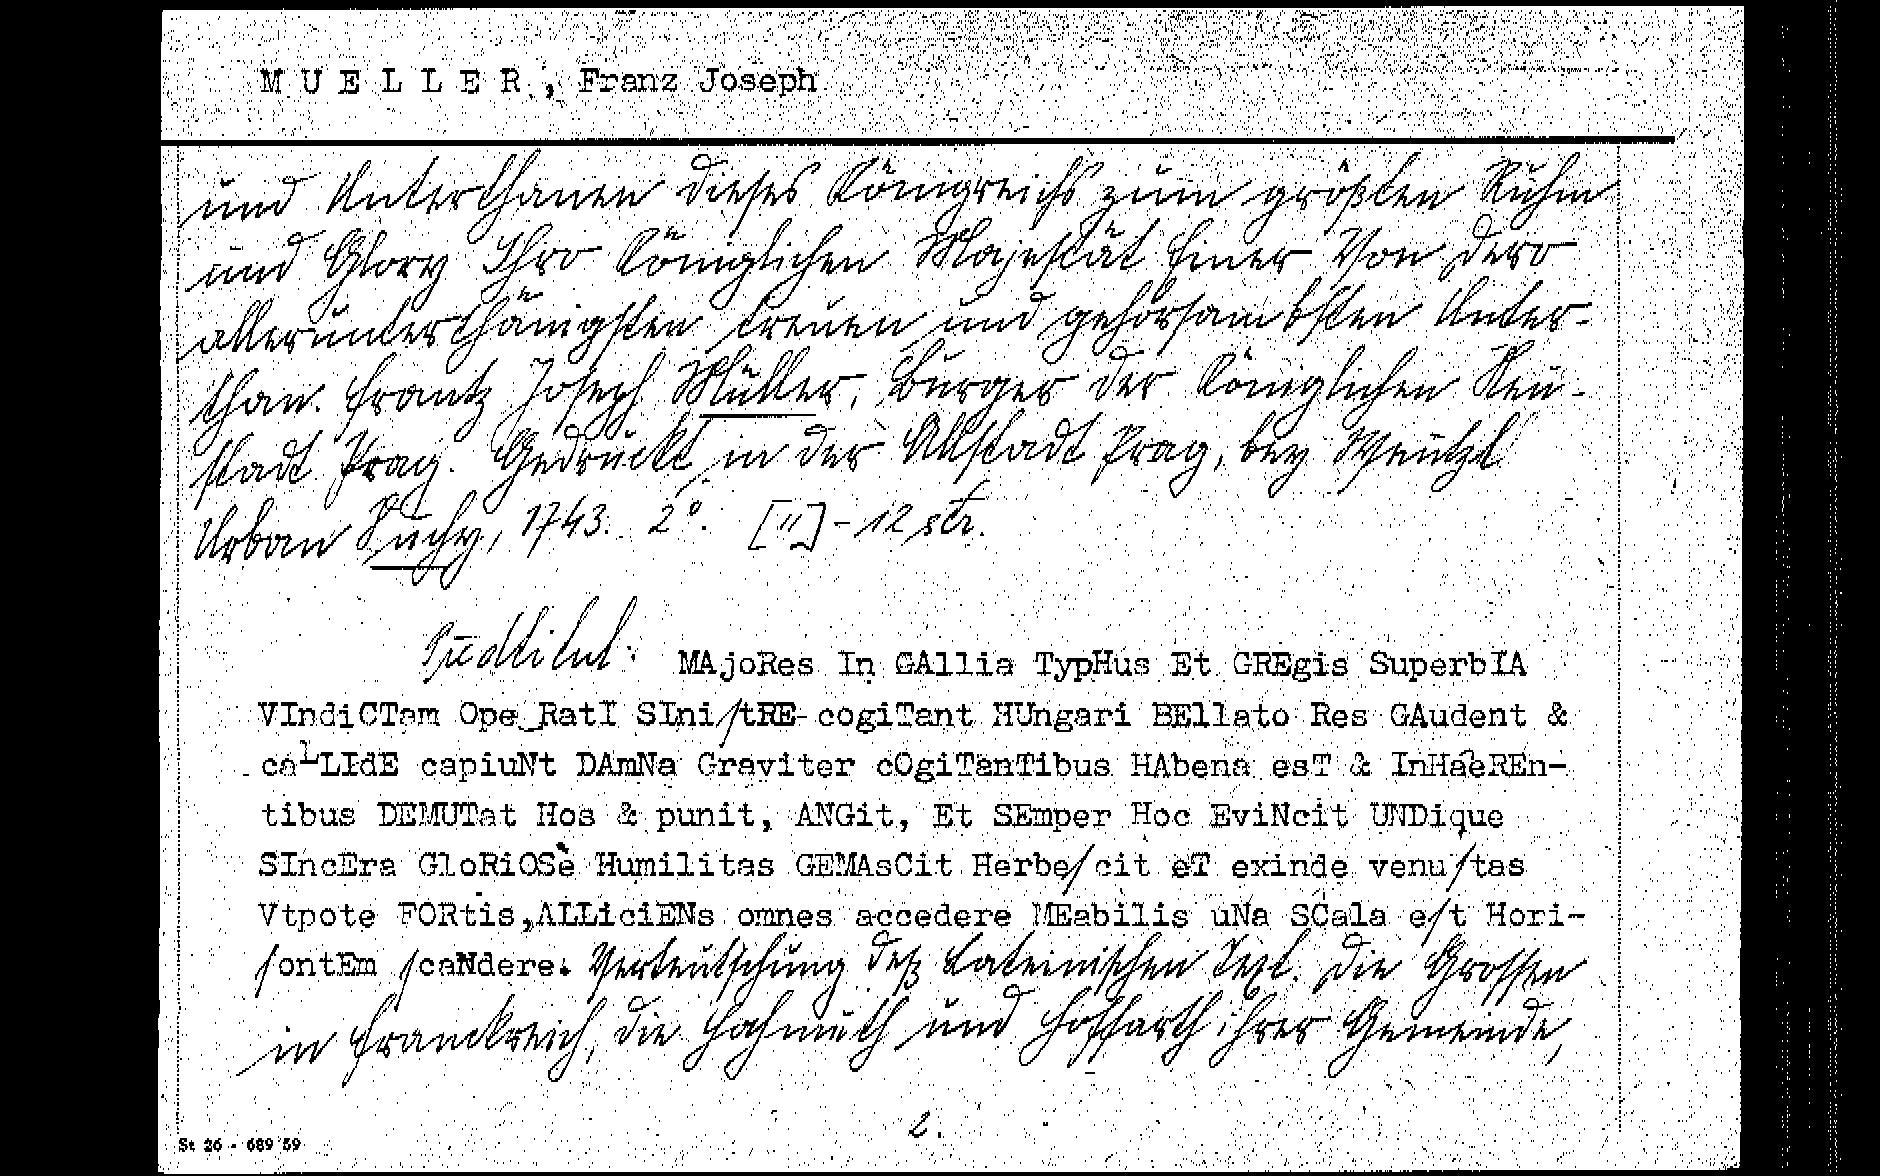 M U E L L E R , Franz Joseph
und Unterthanen dieses Königreichs zum größten Ruhm
und Glory Ihro Königlichen Majestät Einer Von dero
allerunterthänigsten treuen und gehorsambsten Unter-
than. Frantz Joseph Müller, Burger der Königlichen Neu-
stadt Prag. Gedruckt in der Altstadt Prag, bey Wentzl
Urban Suchy, 1743. 2°. [II] - 12 str.
Předtitul: MAjoRes In GAllia TypHus Et GREgis SuperbIA
VIndiCTam Ope_RatI SIniſtRE cogiTant HUngari BEllato Res GAudent &
calLIdE capiuNt DAmNa Graviter cOgiTanTibus HAbena esT & InHaeREn-
tibus DEMUTat Hos & punit, ANGit, Et SEmper Hoc EviNcit UNDique
SIncEra GloRiOSè Humilitas GEMAsCit Herbeſcit eT exinde venuſtas
Vtpote FORtis,ALLiciENs omnes accedere MEabilis uNa SCala eſt Hori-
ſontEm ſcaNdere. Verteutschung deß Lateinischen Text. Die Grossen
in Franckreich, die Hochmuth und Hoffarth ihrer Gemeinde,
2.
St 26 - 689 59